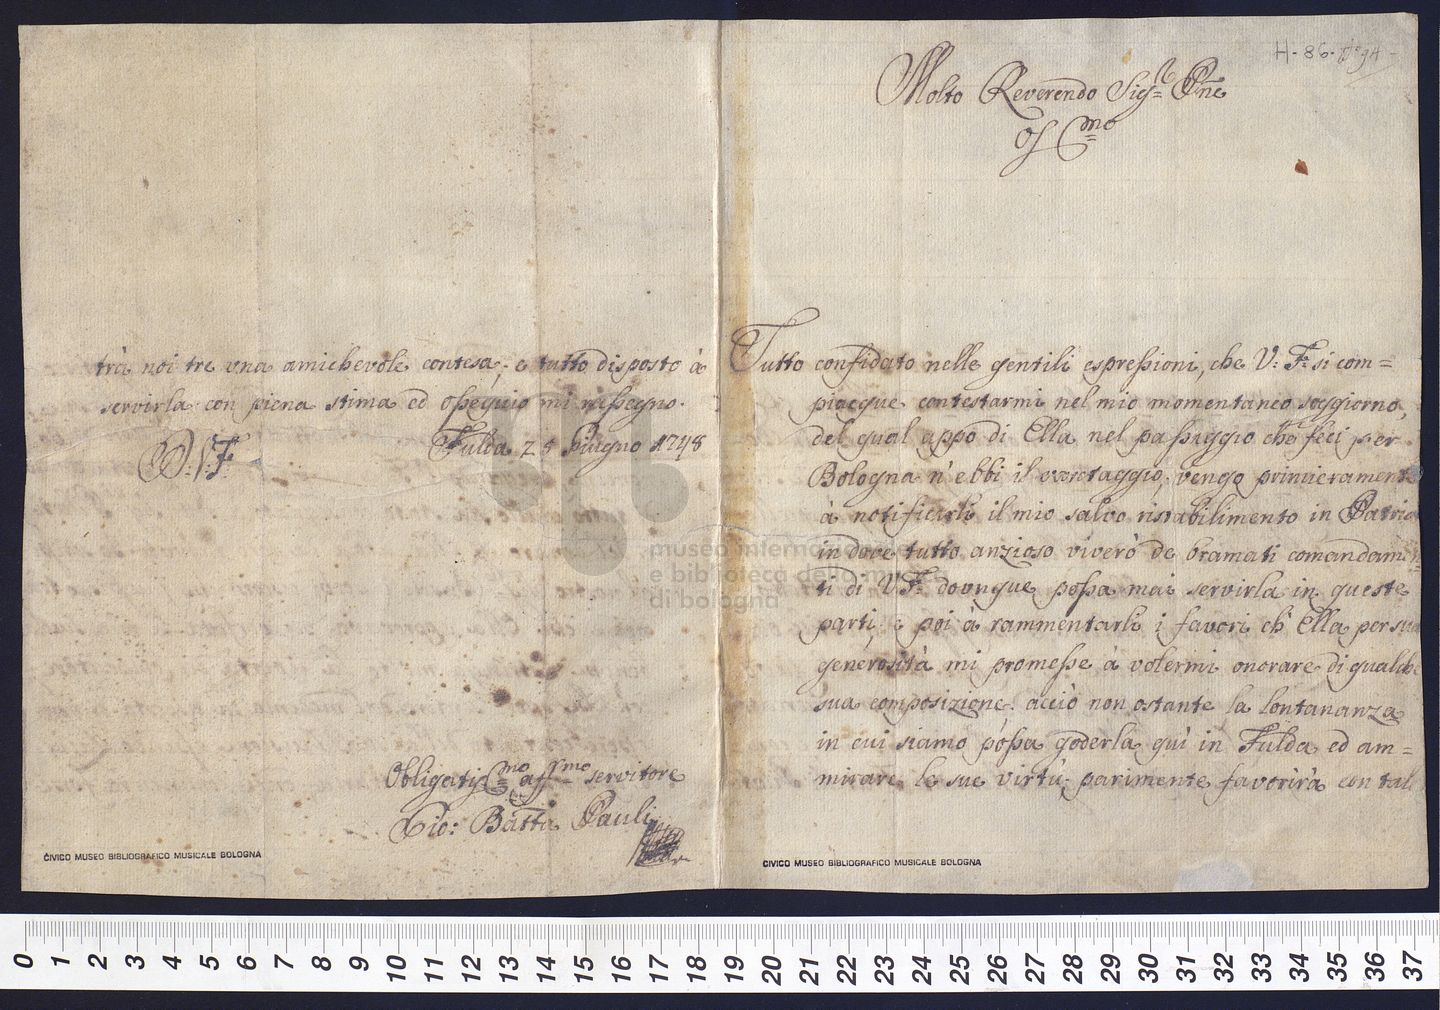 H. 86.
Molto Reverendo Sigr: Pne
Oss.mo
Tutto confidato nelle gentili espressioni, che V: F: si com=
piacque contestarmi nel mio momentaneo soggiorno,
del qual appo di Ella nel passaggio che feci per
Bologna n'ebbi il vantaggio, vengo primieramente
à notificarli il mio salvo ristabilimento in Patria
in dove tutto anzioso viverò de bramati comandam=
ti di V F: dovunque possa mai servirla in queste
parti, e poi à rammentarli i favori ch'Ella per sua
generosità mi promesse à volermi onorare di qualche
sua composizione, acciò non ostante la lontananza
in cui siamo possa goderla quì in Fulda ed am=
mirare le sue virtù; parimente favorirà con tal
trà noi tre vna amichevole contesa; e tutto disposto à
servirla con piena stima ed ossequio mi rassegno.
D: V: F: Fulda 25 Giugno 1748
Obligatissmo affmo servitore
Gio: Batta Pauli
CIVICO MUSEO BIBLIOGRAFICO MUSICALE BOLOGNA
CIVICO MUSEO BIBLIOGRAFICO MUSICALE BOLOGNA
museo internazionale
e biblioteca della musica
di bologna
0 1 2 3 4 5 6 7 8 9 10 11 12 13 14 15 16 17 18 19 20 21 22 23 24 25 26 27 28 29 30 31 32 33 34 35 36 37